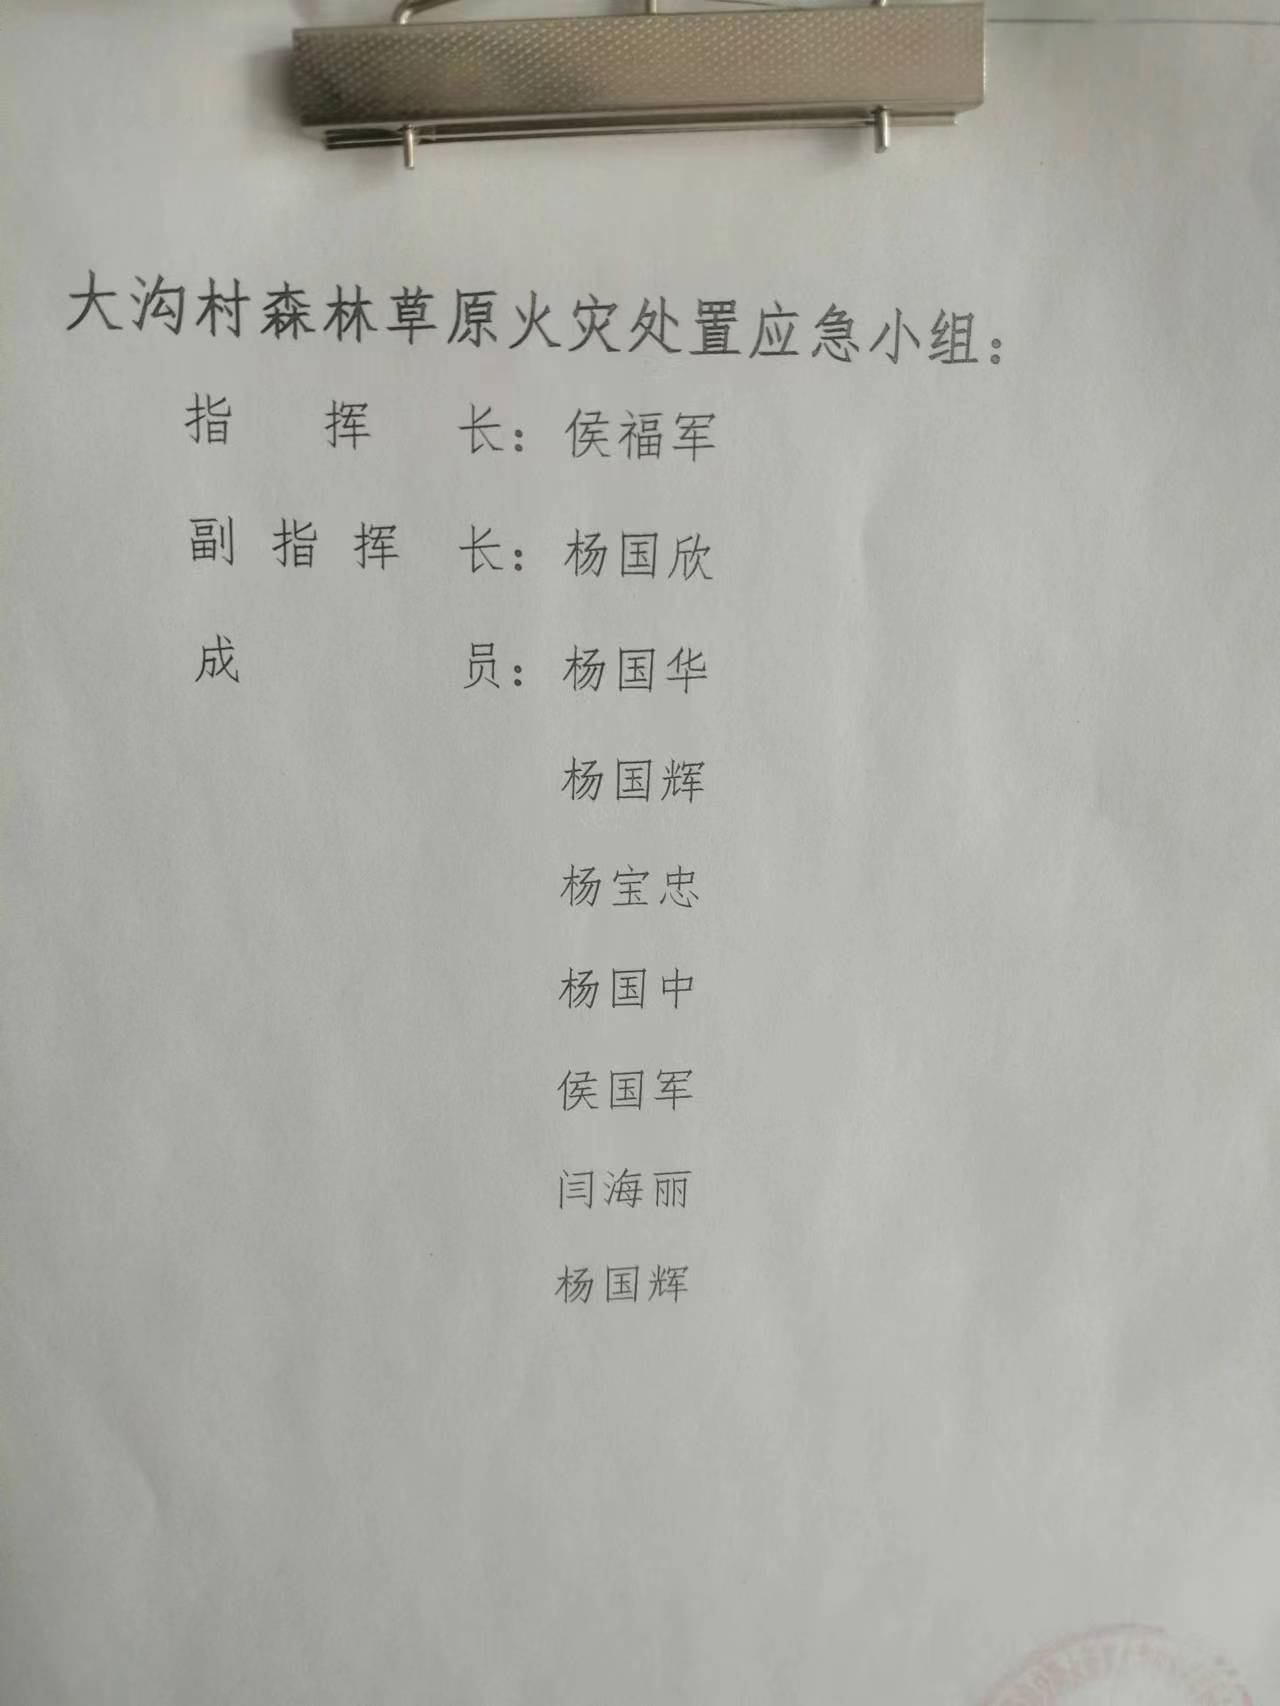 大沟村森林草原火灾处置应急小组：
指挥长：侯福军
副指挥长：杨国欣
成员：杨国华
杨国辉
杨宝忠
杨国中
侯国军
闫海丽
杨国辉